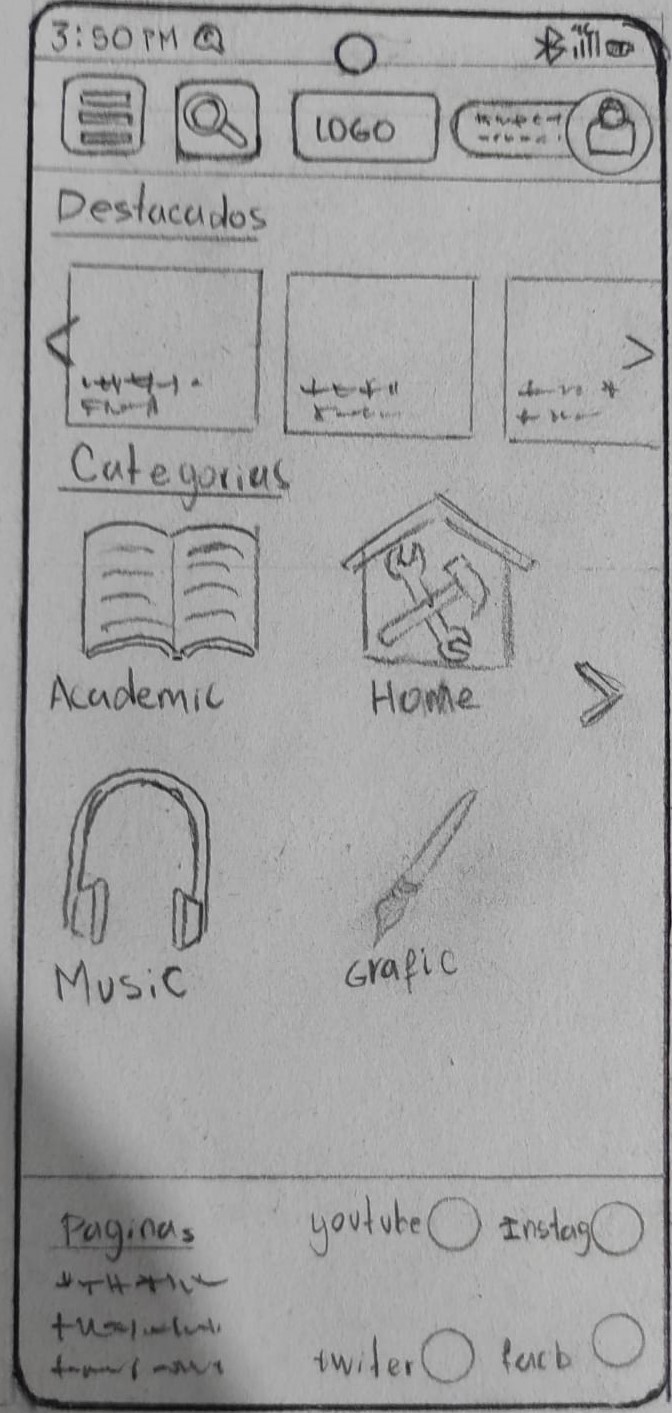 3:50 PM
4G
LOGO
Destacados
Categorias
Academic
Home
Music
Grafic
Paginas
youtube
Instag
twiter
faceb